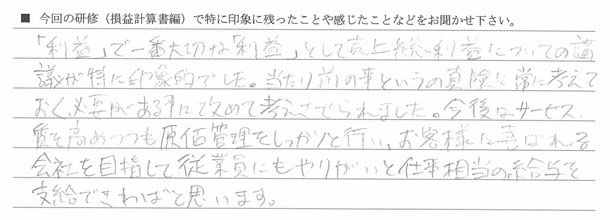 ■ 今回の研修（損益計算書編）で特に印象に残ったことや感じたことなどをお聞かせ下さい。
「利益」で一番大切な「利益」として売上総利益についての講
議が特に印象的でした。当たり前の事というの真険に常に考えて
おく必要がある事に改めて考えさせられました。今後はサービス、
質を高めつつも原価管理をしっかりと行い、お客様に喜ばれる
会社を目指して従業員にもやりがいと仕事相当の給与を
支給できればと思います。